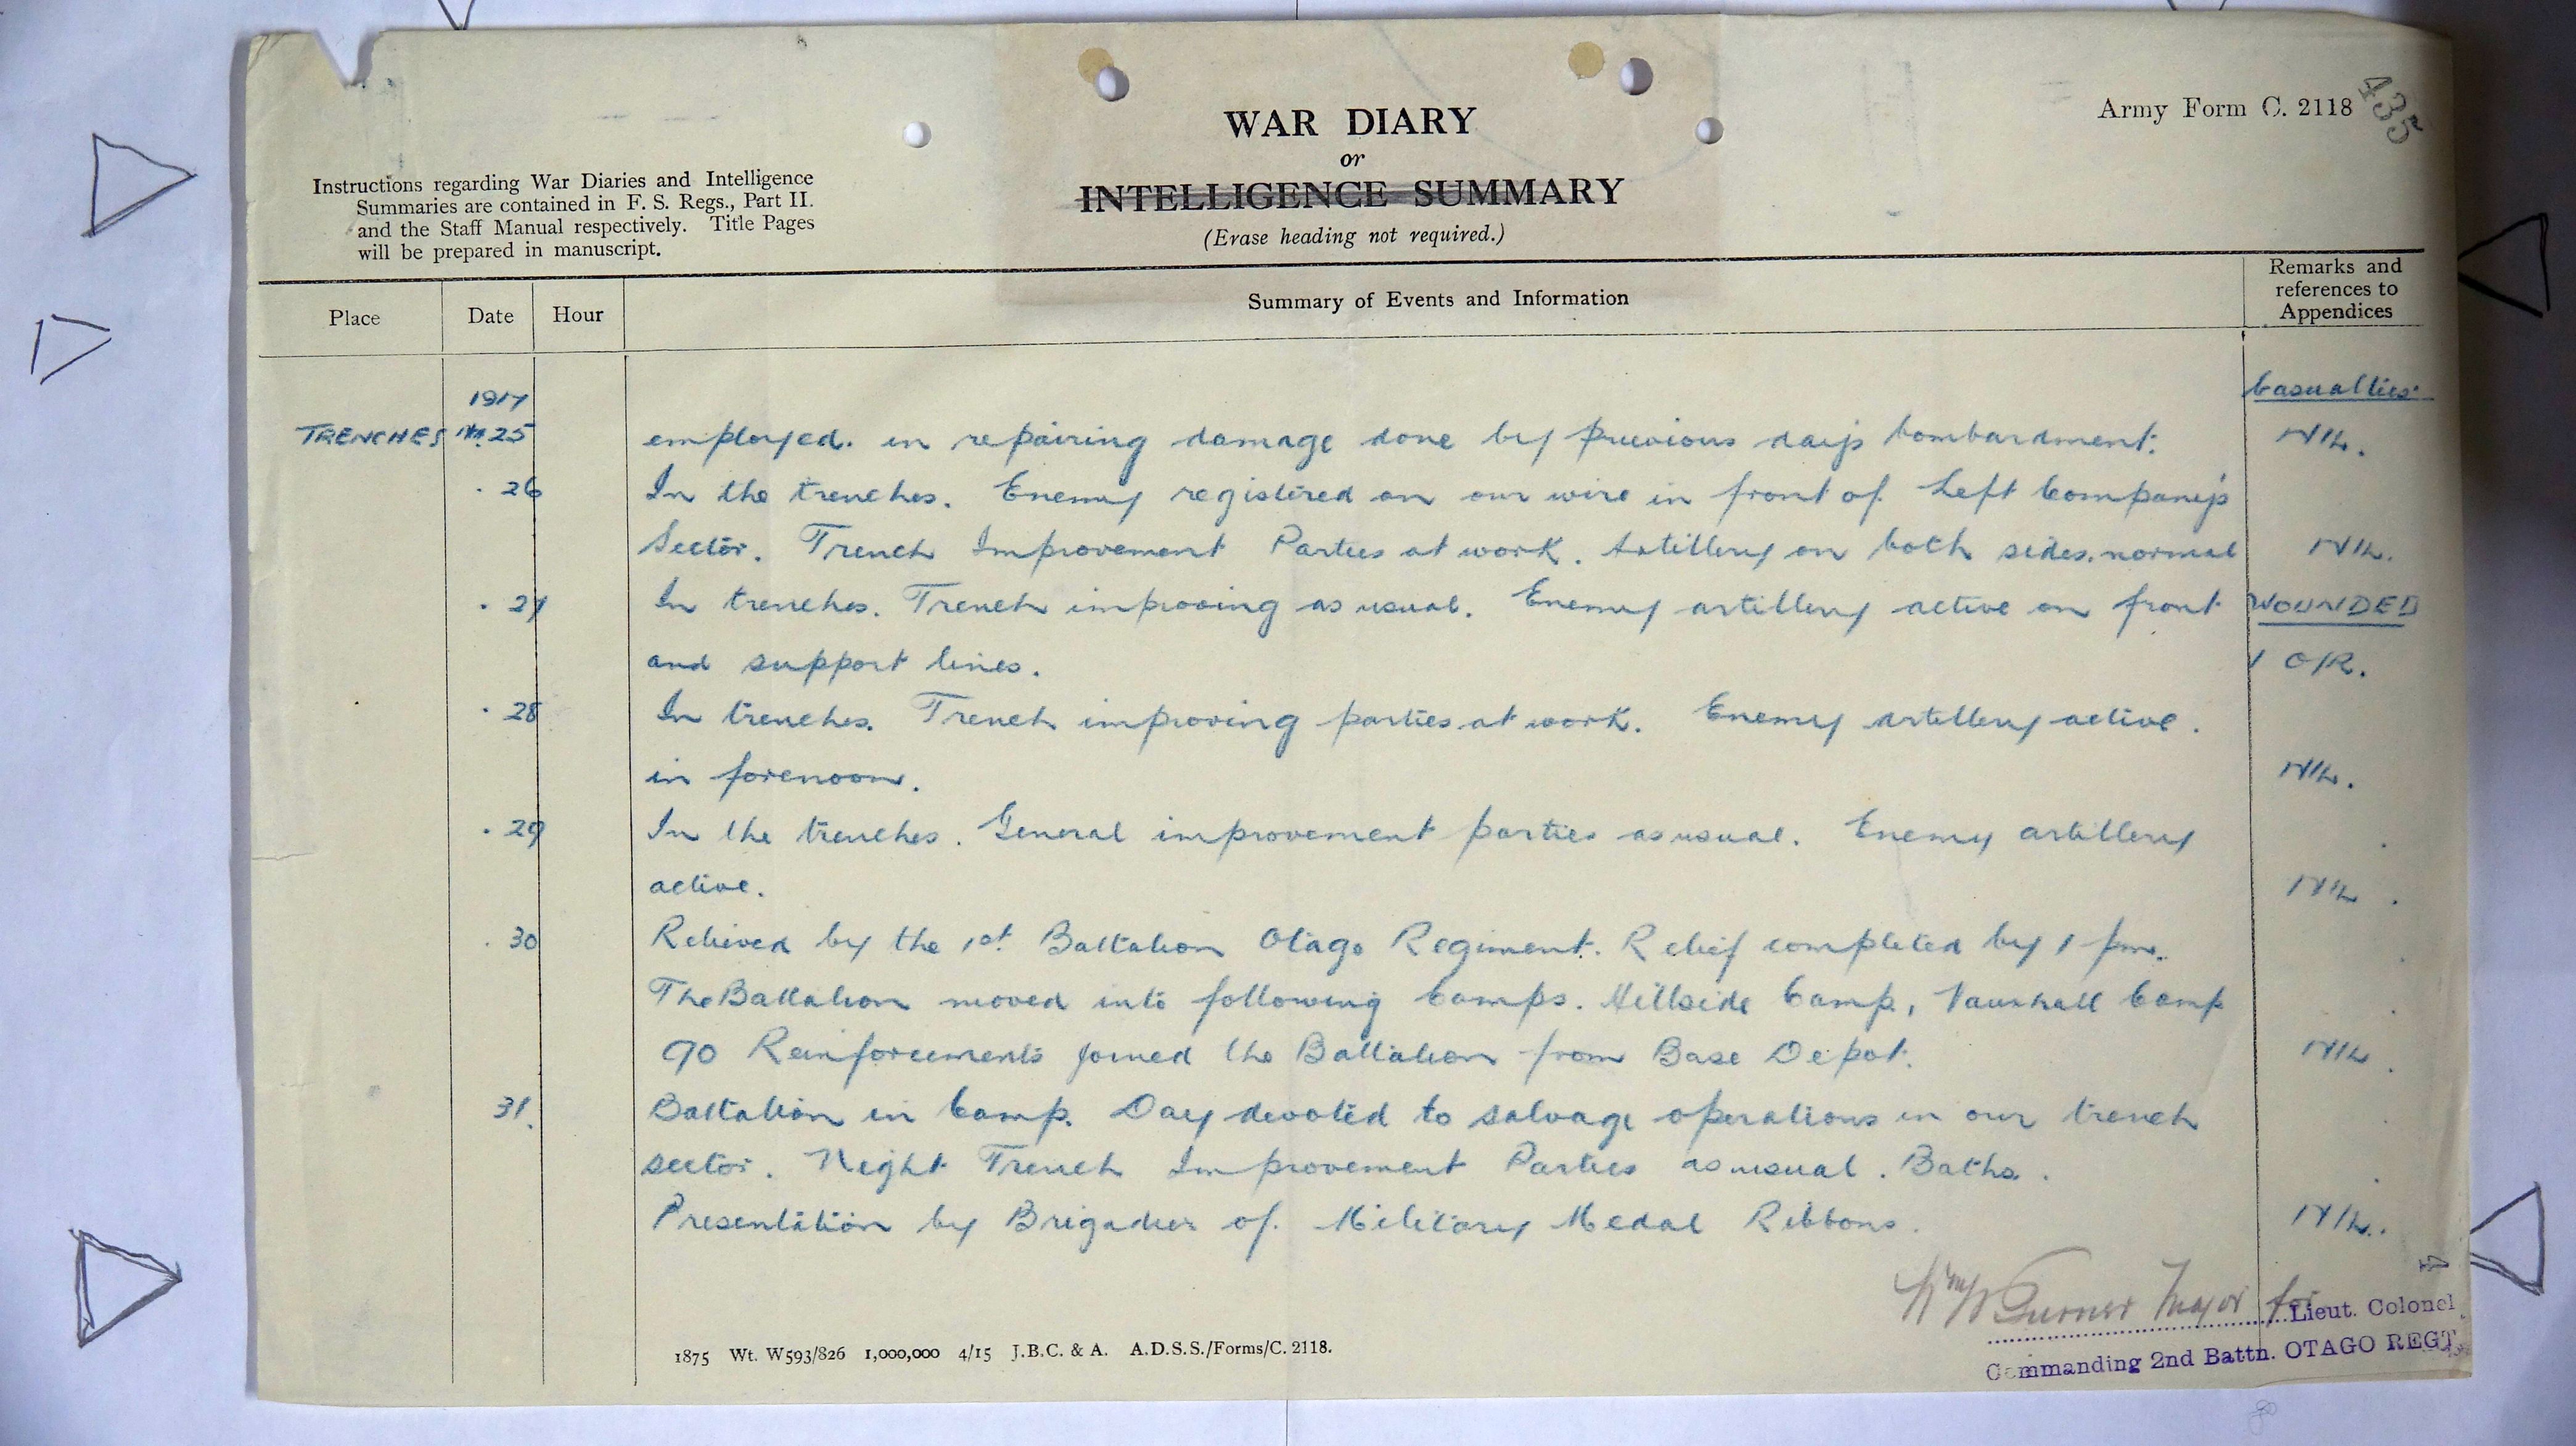 435
Army Form C. 2118
WAR DIARY
or
INTELLIGENCE SUMMARY
(Erase heading not required.)
Instructions regarding War Diaries and Intelligence
Summaries are contained in F. S. Regs., Part II.
and the Staff Manual respectively. Title Pages
will be prepared in manuscript.
Place Date Hour Summary of Events and Information Remarks and
references to
Appendices
1917 Casualties.
TRENCHES 25 employed. in repairing damage done by previous day's bombardment. NIL.
. 26 In the trenches. Enemy registered on our wire in front of Left Company's
Sector. Trench Improvement Parties at work. Artillery on both sides normal NIL.
. 27 In trenches. Trench improving as usual. Enemy artillery active on front WOUNDED
and support lines. 1 O/R.
. 28 In trenches. Trench improving parties at work. Enemy artillery active.
in forenoon. NIL.
. 29 In the trenches. General improvement parties as usual. Enemy artillery
active. NIL.
. 30 Relieved by the 1st Battalion Otago Regiment. Relief completed by 1 pm.
The Battalion moved into following Camps. Hillside Camp, Vauxhall Camp
90 Reinforcements joined the Battalion from Base Depot. NIL.
31. Battalion in Camp. Day devoted to salvage operations in our trench
sector. Night Trench Improvement Parties as usual. Baths.
Presentation by Brigadier of Military Medal Ribbons. NIL.
4
Turner Major for Lieut. Colonel
Commanding 2nd Battn. OTAGO REGT.
1875 Wt. W593/826 1,000,000 4/15 J.B.C. & A. A.D.S.S./Forms/C. 2118.